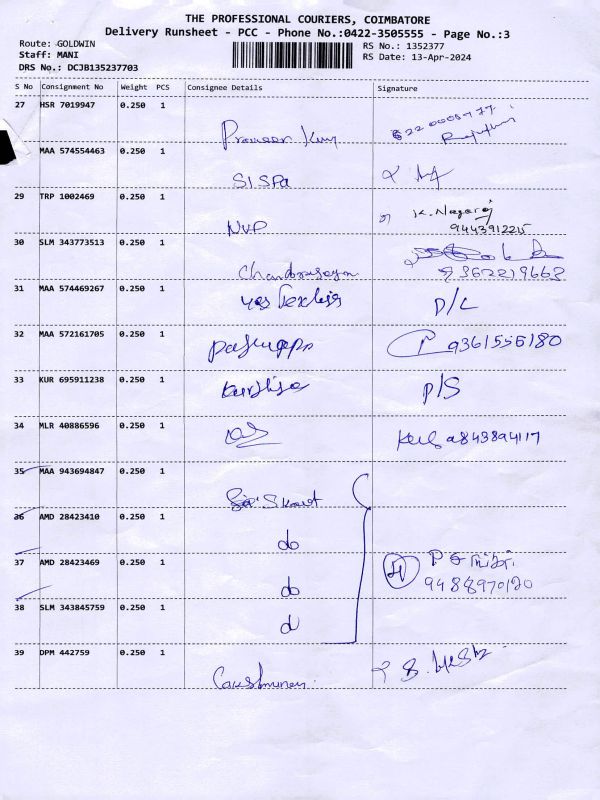 THE PROFESSIONAL COURIERS, COIMBATORE
Delivery Runsheet - PCC - Phone No.:0422-3505555 - Page No.:3
Route: GOLDWIN
Staff: MANI
DRS No.: DCJB135237703
RS No.: 1352377
RS Date: 13-Apr-2024
S No Consignment No Weight PCS Consignee Details Signature
27 HSR 7019947 0.250 1
MAA 574554463 0.250 1
SISPA
29 TRP 1002469 0.250 1
K. Nagaraj
NVP 9443912215
30 SLM 343773513 0.250 1
9362219663
31 MAA 574469267 0.250 1
D/L
32 MAA 572161705 0.250 1
9361555180
33 KUR 695911238 0.250 1
P/S
34 MLR 40886596 0.250 1
9843894117
35 MAA 943694847 0.250 1
36 AMD 28423410 0.250 1
do
37 AMD 28423469 0.250 1
do 9488970120
38 SLM 343845759 0.250 1
39 DPM 442759 0.250 1